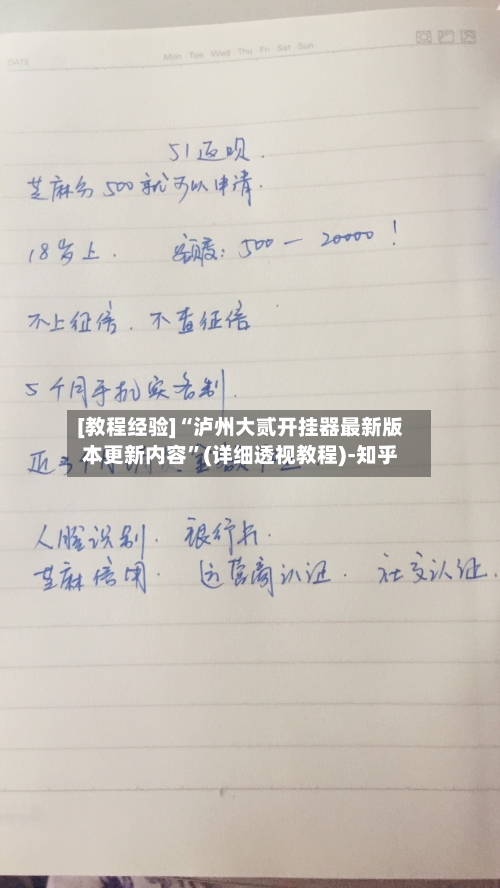 DATE
Mon Tue Wed Thu Fri Sat Sun
51返呗.
芝麻分500就可以申请.
18岁上. 额度: 500一20000!
不上征信. 不查征信
5个月手机实名制.
[教程经验]“泸州大贰开挂器最新版
本更新内容”(详细透视教程)-知乎
人脸识别. 银行卡.
芝麻信用. 运营商认证. 社交认证.